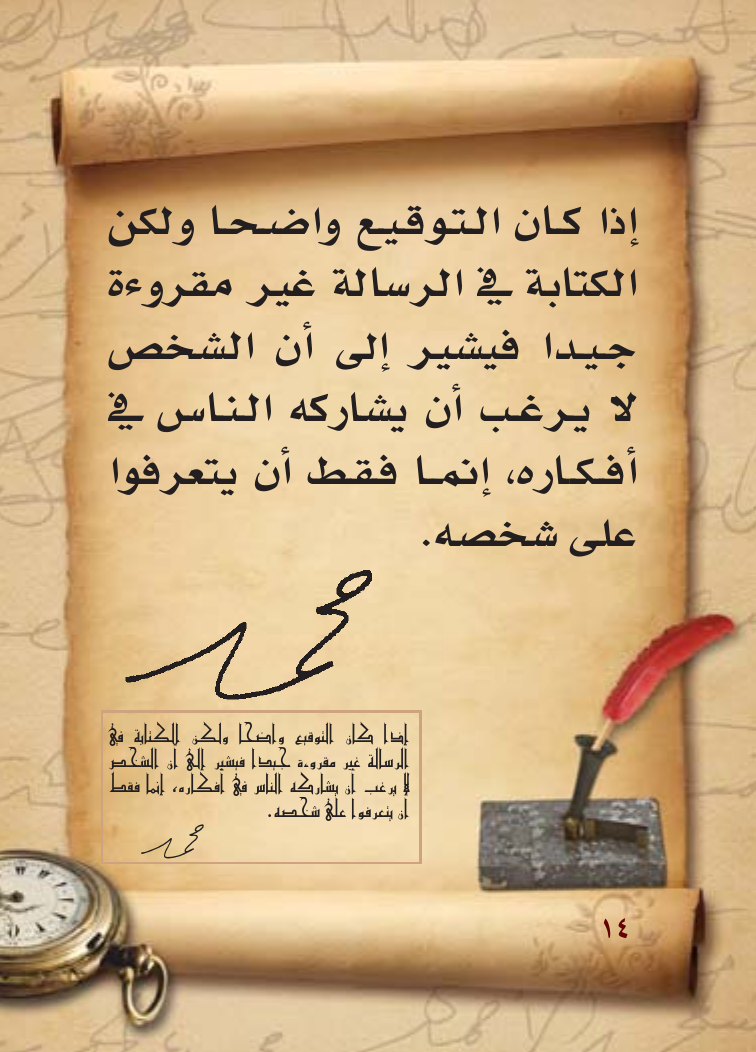 إذا كان التوقيع واضحا ولكن
الكتابة في الرسالة غير مقروءة
جيدا فيشير إلى أن الشخص
لا يرغب أن يشاركه الناس في
أفكاره، إنما فقط أن يتعرفوا
على شخصه.
محمد
إذا كان التوقيع واضحا ولكن الكتابة في
الرسالة غير مقروءة جيدا فيشير إلى أن الشخص
لا يرغب أن يشاركه الناس في أفكاره، إنما فقط
أن يتعرفوا على شخصه.
محمد
١٤